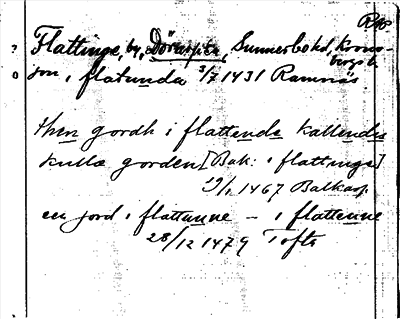 Flattinge, by, Dörarps sn, Sunnerbo hd, Krono-
bergs l.
jon i flatunda 3/7 1431 Ramnäs
then gordh i flattende kallendes
kullæ gorden [Bak: i flattinge]
29/1 1467 Balkarp
een jord i flattunne – i flattenne
28/12 1479 Tofta